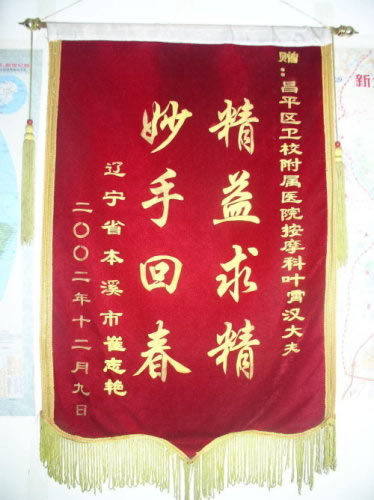 赠：昌平区卫校附属医院按摩科叶霄汉大夫
精益求精
妙手回春
辽宁省本溪市崔志艳
二〇〇二年十二月九日
新